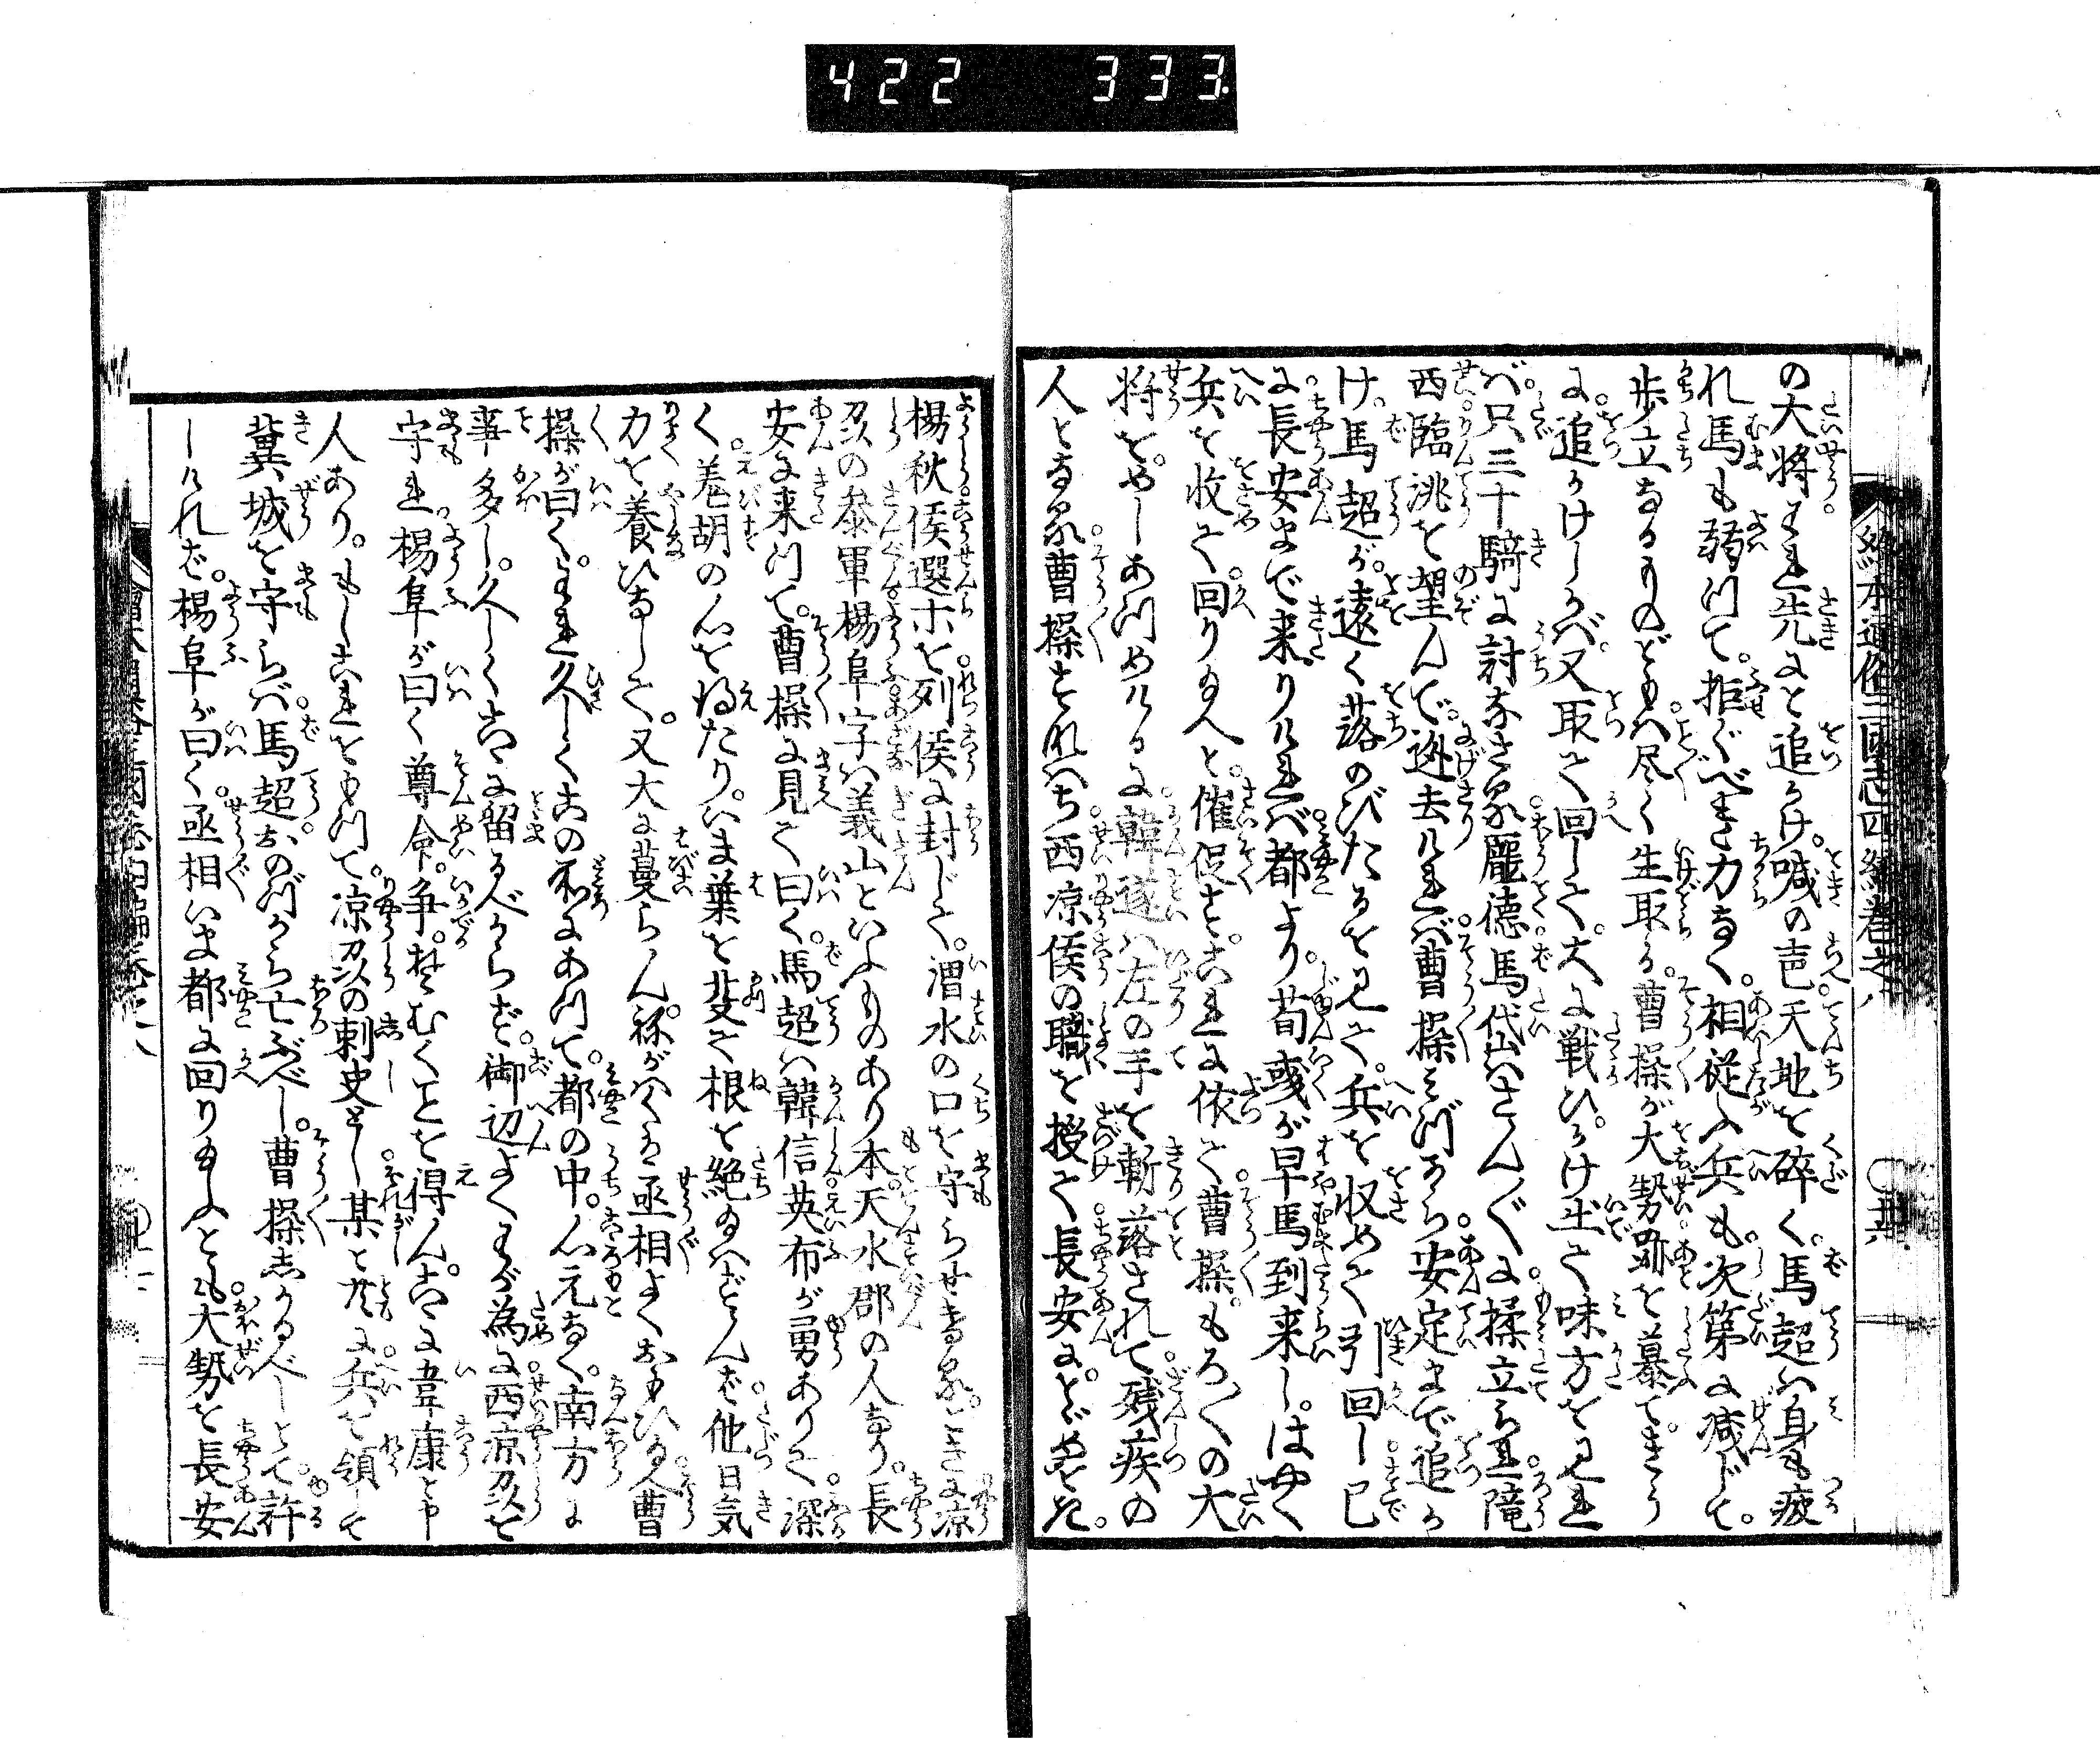 422 333
絵本通俗三国志四編巻之八
の大将われ先にと追かけ。喊の声天地を碎く。馬超ハ身も疲
れ馬も弱つて。拒ぐべき力なく。相従ふ兵も次第に减じて。
歩立なるものどもハ尽く生取る。曹操が大勢跡を慕て。きう
に追かけしかバ。又取て回して。大に戦ひ。かけ出て味方を見れ
バ。只三十騎に討なされ。龐徳馬岱ハさん〴〵に揉立られ。隴
西臨洮を望んで。迯去けれバ。曹操みづから安定まで追か
け。馬超が遠く落のびたるを見て。兵を収めて引回し。已
に長安まで来りけれバ都より。荀彧が早馬到来し。はやく
兵を收て回り給へと。催促す。これに依て曹操。もろ〳〵の大
将を。やしあつめけるに。韓遂ハ左の手を斬落されて残疾の
人となる。曹操すなハち西凉侯の職を授て長安に。とゞめをき。
楊秋侯選ホを列侯に封じて。渭水の口を守らせける。ときに凉
刕の参軍楊阜字ハ義山といふものあり本天水郡の人なり。長
安に来つて。曹操に見て曰く。馬超ハ韓信英布が勇ありて深
く。羗胡の心を得たり。いま葉を芟て根を絶給ハずんば他日気
力を養ひなして。又大に蔓らん。祢がハくは丞相よくおもひ給へ曹
操が曰く。われ久しくこの所にあつて。都の中。心元なく。南方に
事多し。久しくこゝに留るべからず。御辺よくわが為に西凉刕を
守れ楊阜が曰く尊命。争。そむくことを得ん。こゝに韋康と申
人あり。もしこれをもつて。凉刕の刺史とし某と共に兵を領して
冀城を守らバ馬超おのづから亡ぶべし。曹操志かるべしとて。許
しけれバ。楊阜が曰く。丞相いま都に回り給ふとも。大勢を長安